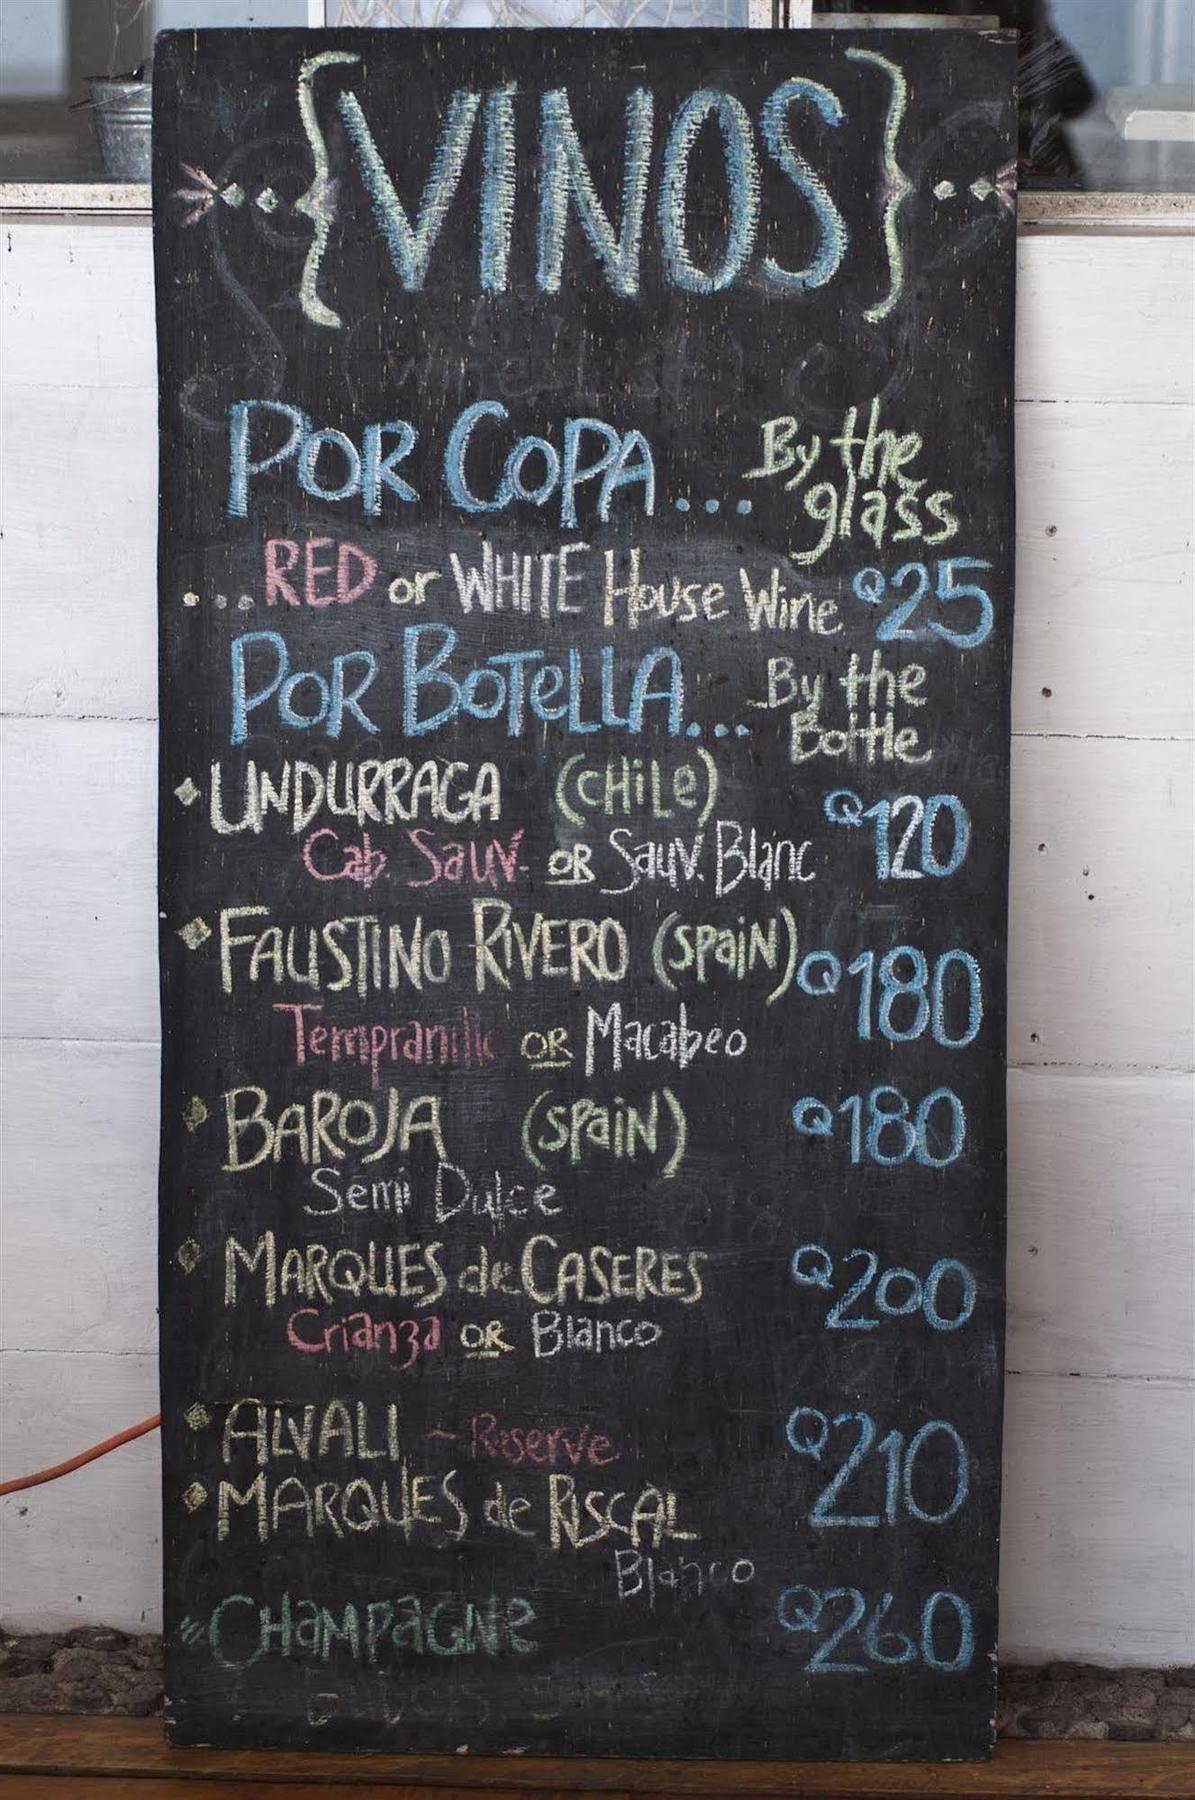 {VINOS}
POR COPA... By the glass
...RED or WHITE House Wine Q25
POR BOTELLA... By the Bottle
UNDURRAGA (CHILE) Q120
Cab Sauv. OR Sauv. Blanc
FAUSTINO RIVERO (SPAIN) Q180
Tempranillo OR Macabeo
BAROJA (SPAIN) Q180
Semi Dulce
MARQUES de CASERES Q200
Crianza OR Blanco
ALVALI - Reserve Q210
MARQUES de RISCAL
Blanco
CHAMPAGNE Q260